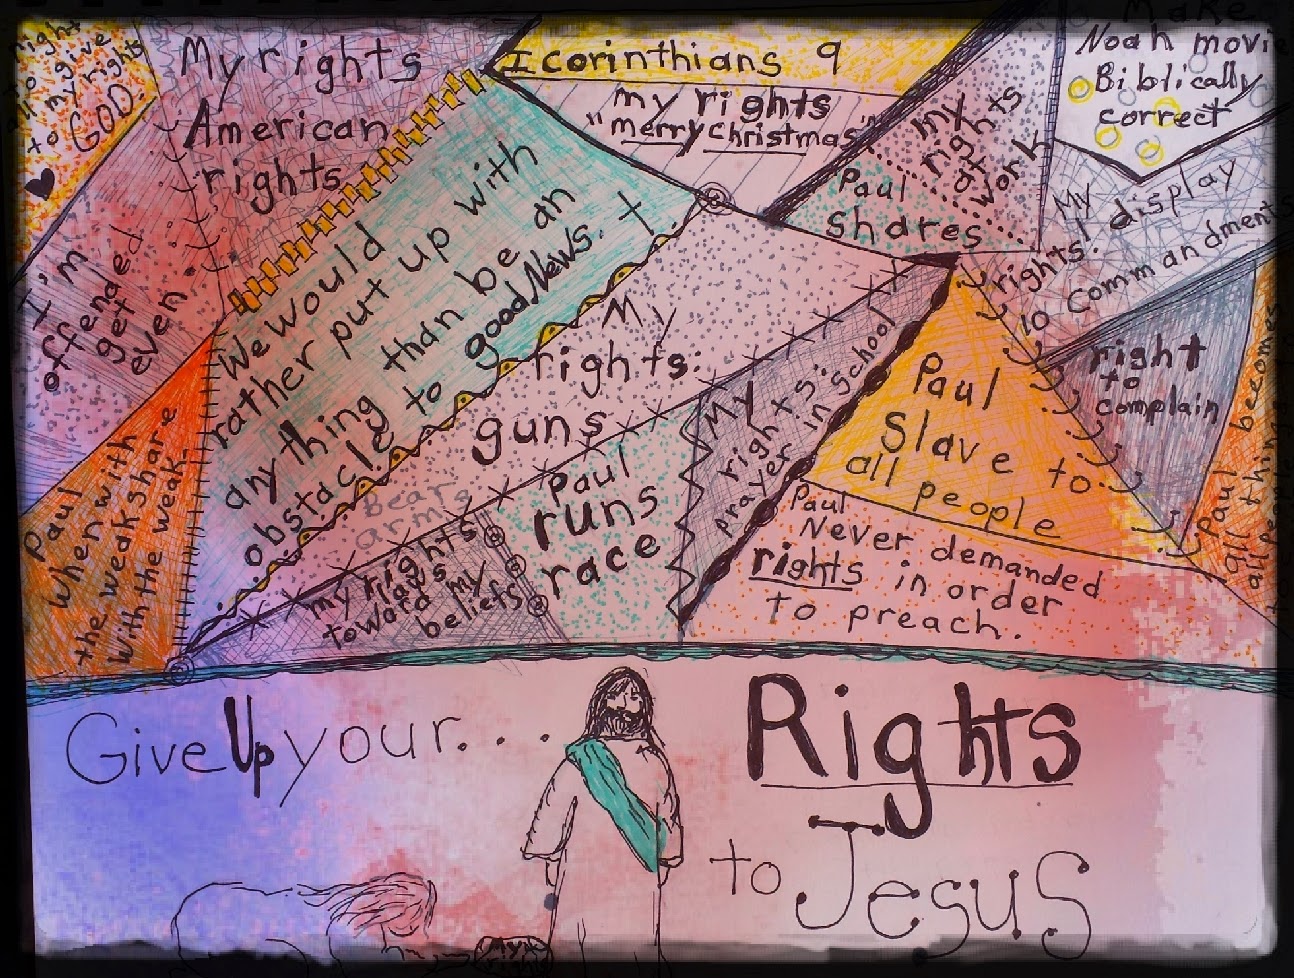 right
to give
all my rights
to GOD
My rights
American
rights
I corinthians 9
my rights
"merry christmas"
my
rights
at
work
Paul
Shares
Make
Noah movie
Biblically
correct
My
rights: display
10 Commandments
I'm
offended
get
even
We would
rather put up with
anything than be an
obstacle to good News.
My
rights:
guns
Bear
arms
My
rights:
prayer in School
Paul
Slave to
all people
right
to
complain
Paul becomes
all things
all people
Paul
When with
the weak share
with the weak.
my rights
laws
toward my
beliefs
Paul
runs
race
Paul
Never demanded
rights in order
to preach.
Give Up your....
Rights
to Jesus
My